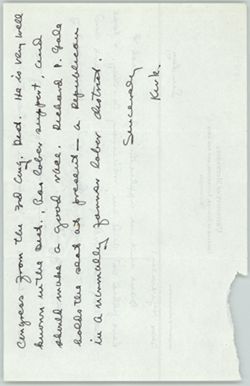 Congress from the 3rd Cong. Dist. He is very well
known in the Dist., has labor support, and
should make a good race. Richard P. Gale
holds the seat at present — a Republican
in a normally farmer labor district.
Sincerely
Kirk.